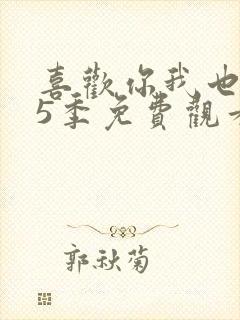 喜歡你我也
5季免費觀
郭秋菊